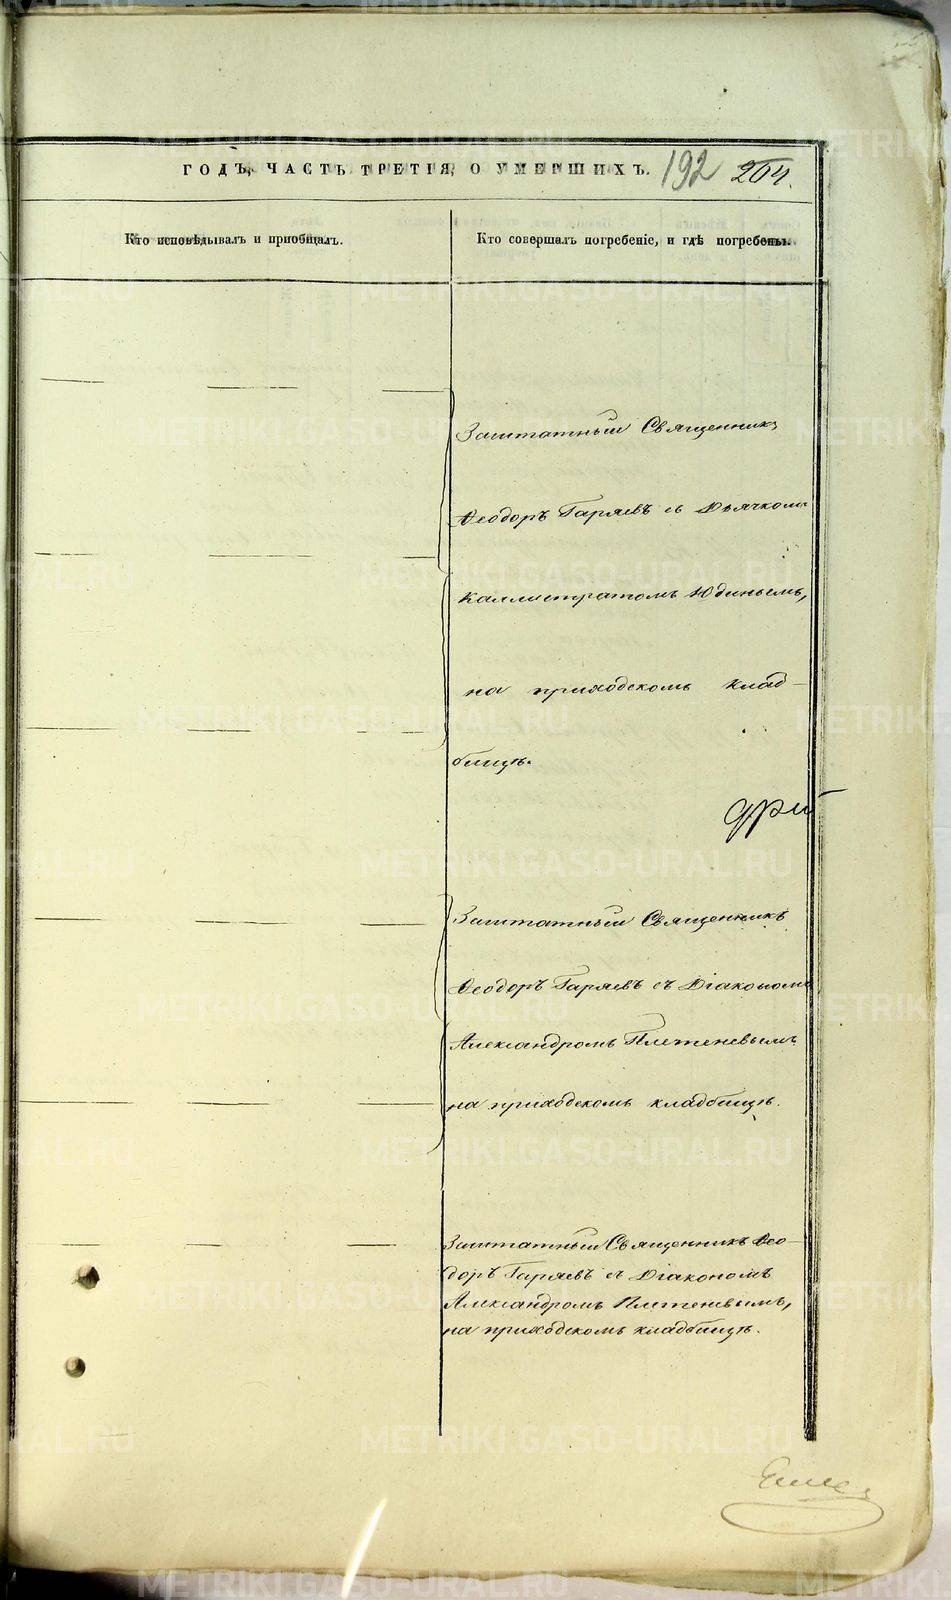 ГОДЪ, ЧАСТЬ ТРЕТІЯ, О УМЕРШИХЪ. 192 204.
Кто исповѣдывалъ и приобщалъ.
Кто совершалъ погребеніе, и гдѣ погребены.
Заштатный Священникъ
Ѳеодоръ Гаряевъ съ Дьячкомъ
Каллистратомъ Юдинымъ,
на приходскомъ клад-
бищѣ.
Заштатный Священникъ
Ѳеодоръ Гаряевъ съ Діакономъ
Александромъ Плетеневымъ
на приходскомъ кладбищѣ.
Заштатный Священникъ Ѳео-
доръ Гаряевъ съ Діакономъ
Александромъ Плетеневымъ,
на приходскомъ кладбищѣ.
METRIKI.GASO-URAL.RU